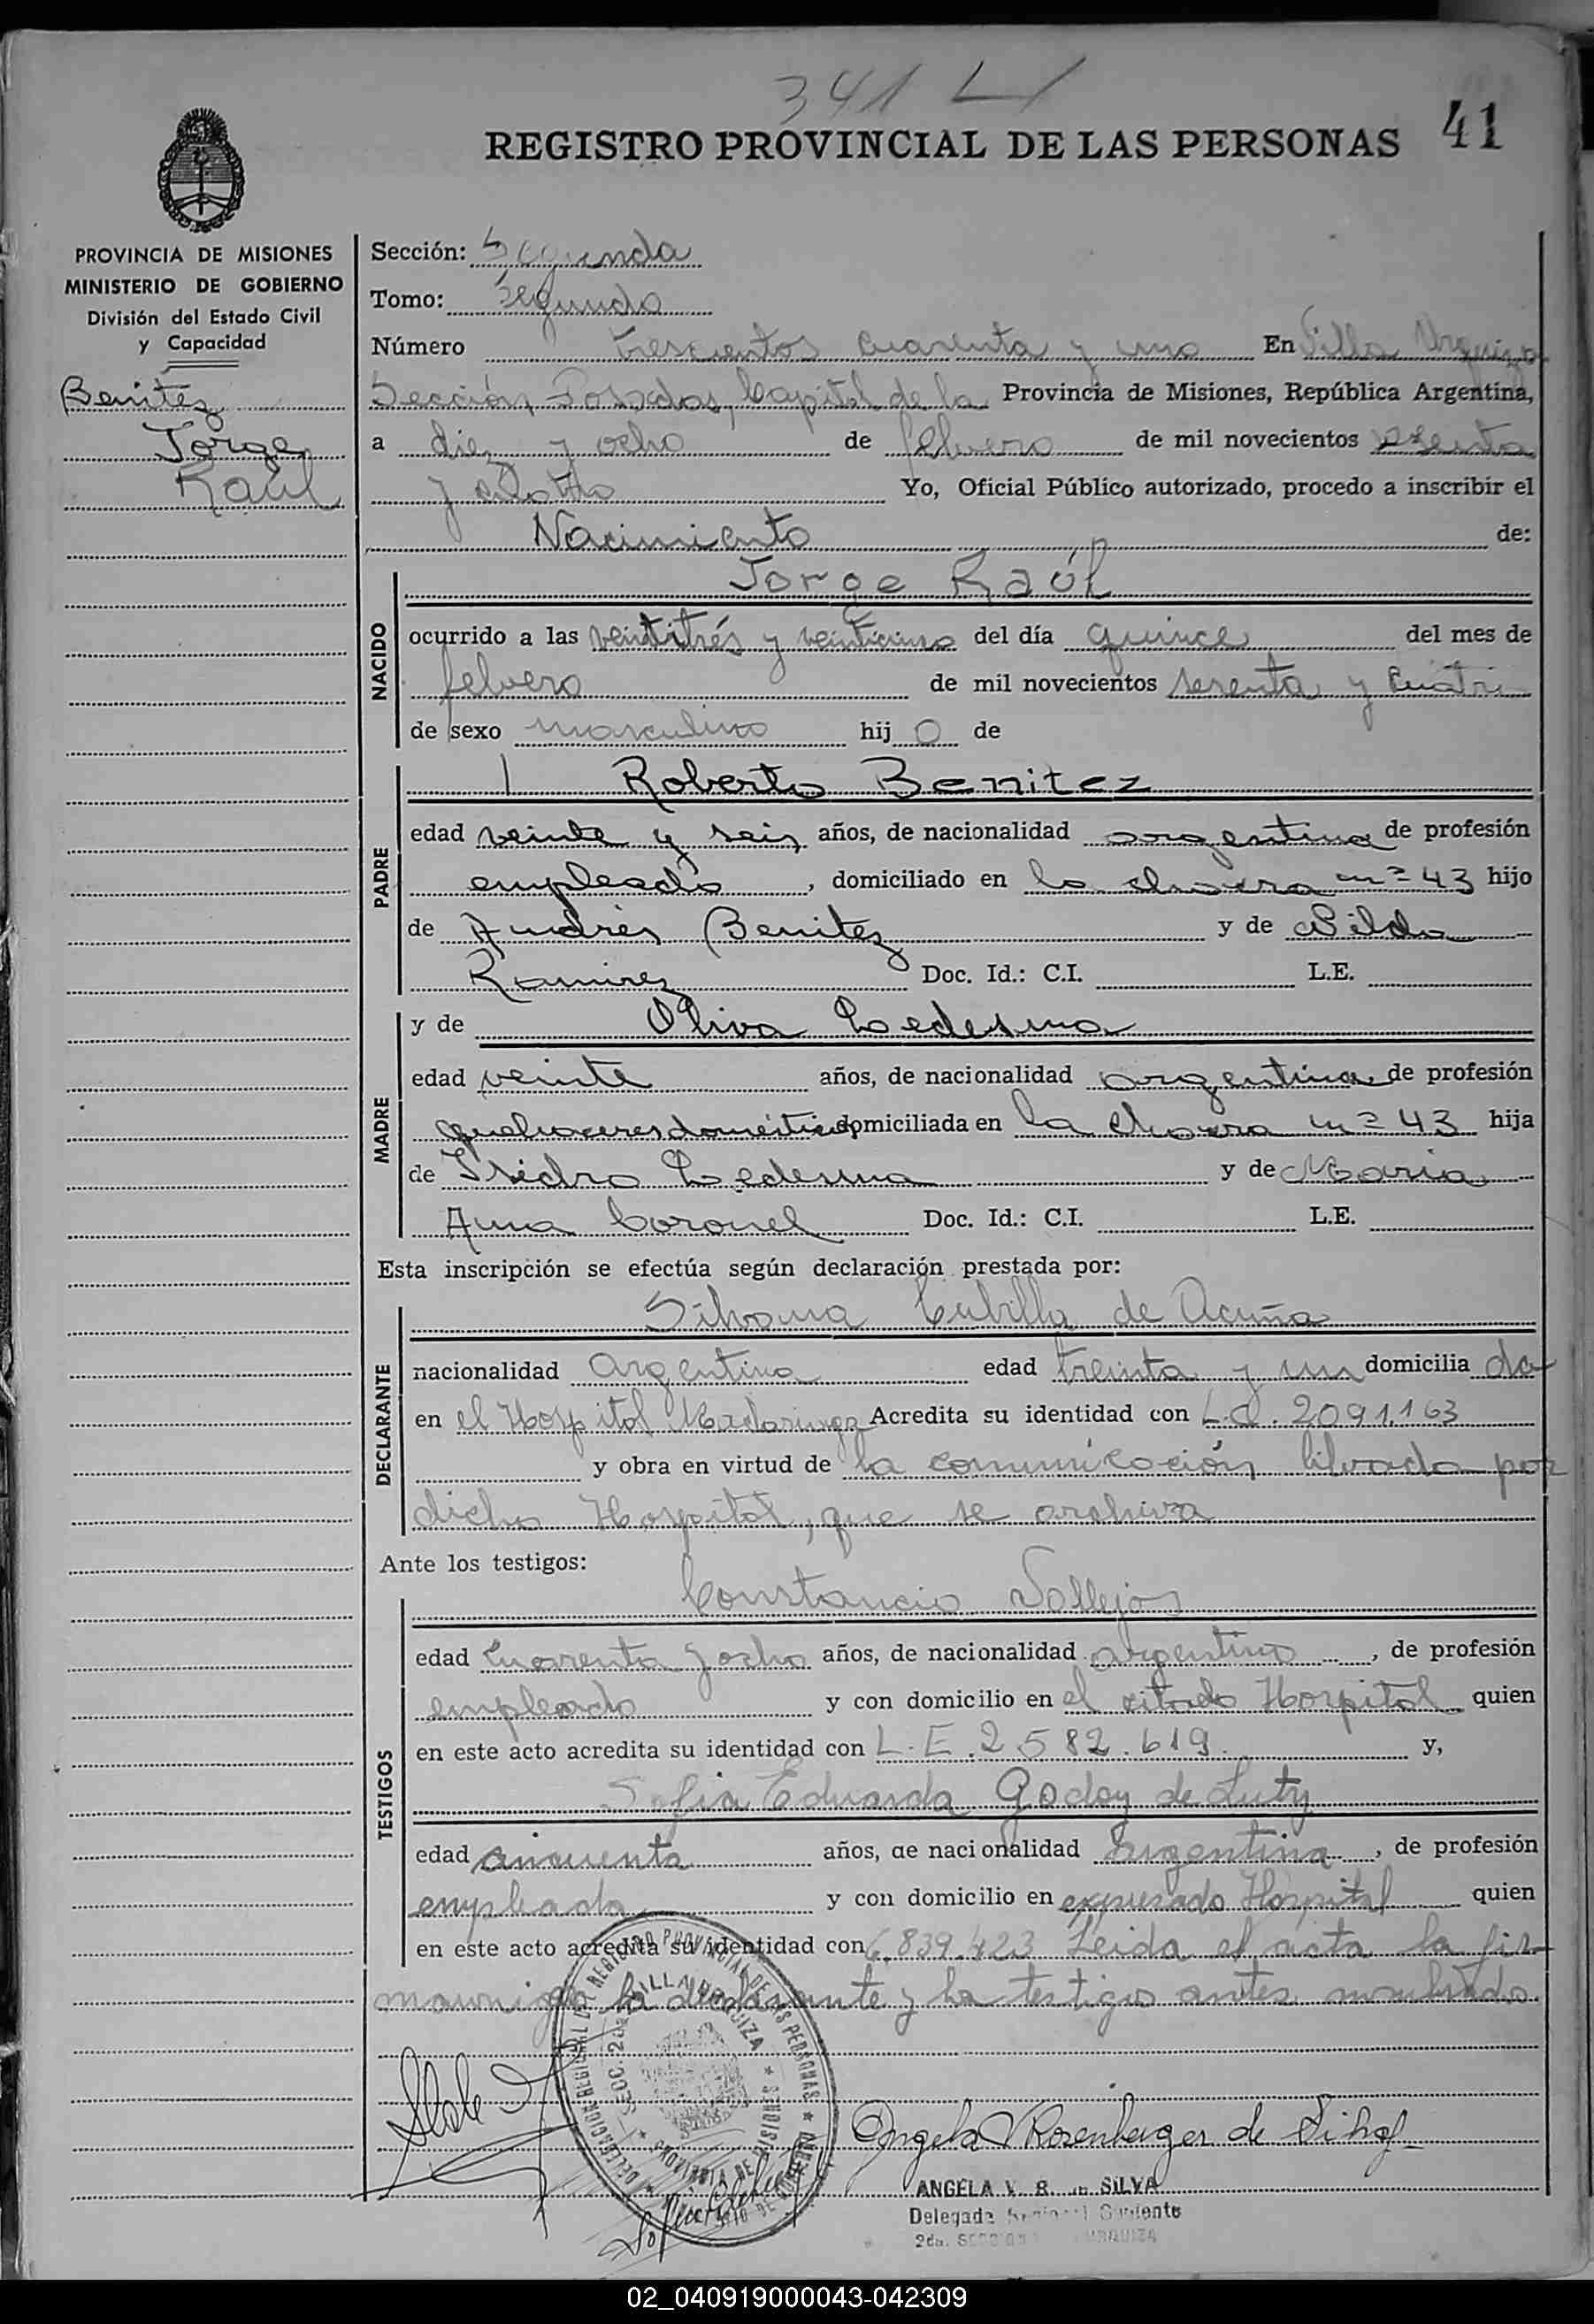 341
REGISTRO PROVINCIAL DE LAS PERSONAS 41
PROVINCIA DE MISIONES
MINISTERIO DE GOBIERNO
División del Estado Civil
y Capacidad
Benitez
Jorge
Raúl
Sección: Segunda
Tomo: Segundo
Número trescientos cuarenta y uno En Villa Urquiza
Sección, Posadas, Capital de la Provincia de Misiones, República Argentina,
a diez y ocho de febrero de mil novecientos sesenta
y cuatro Yo, Oficial Público autorizado, procedo a inscribir el
Nacimiento de:
NACIDO
Jorge Raúl
ocurrido a las veintitrés y veinticinco del día quince del mes de
febrero de mil novecientos sesenta y cuatro
de sexo masculino hij o de
PADRE
Roberto Benitez
edad veinte y seis años, de nacionalidad argentina de profesión
empleado, domiciliado en la chacra nº 43 hijo
de Andrés Benitez y de
Ramirez Doc. Id.: C.I. L.E.
MADRE
y de Oliva Ledesma
edad veinte años, de nacionalidad argentina de profesión
quehaceres domésticos domiciliada en la chacra nº 43 hija
de Isidro Ledesma y de Maria
Anna Coronel Doc. Id.: C.I. L.E.
Esta inscripción se efectúa según declaración prestada por:
DECLARANTE
Silvana Cubilla de Acuña
nacionalidad argentina edad treinta y un domicilia da
en el Hospital Madariaga Acredita su identidad con L.C. 2091.163
y obra en virtud de la comunicación librada por
dicho Hospital, que se archiva
Ante los testigos:
TESTIGOS
Constancio Vallejos
edad cuarenta y ocho años, de nacionalidad argentino, de profesión
empleado y con domicilio en el citado Hospital quien
en este acto acredita su identidad con L.E. 2582.619. y,
Sofia Eduarda Godoy de Luty
edad cincuenta años, de nacionalidad Argentina, de profesión
empleada y con domicilio en expresado Hospital quien
en este acto acredita su identidad con 6.839.423 Leida el acta la fir-
man la declarante y los testigos antes nombrados.
DELEGACION REGIONAL DEL REGISTRO PROVINCIAL DE LAS PERSONAS
SECC. 2da. VILLA URQUIZA
PROVINCIA DE MISIONES
Angela V Rosenberger de Silva
ANGELA V. R. de SILVA
Delegada
2da. SECCION URQUIZA
02_040919000043-042309